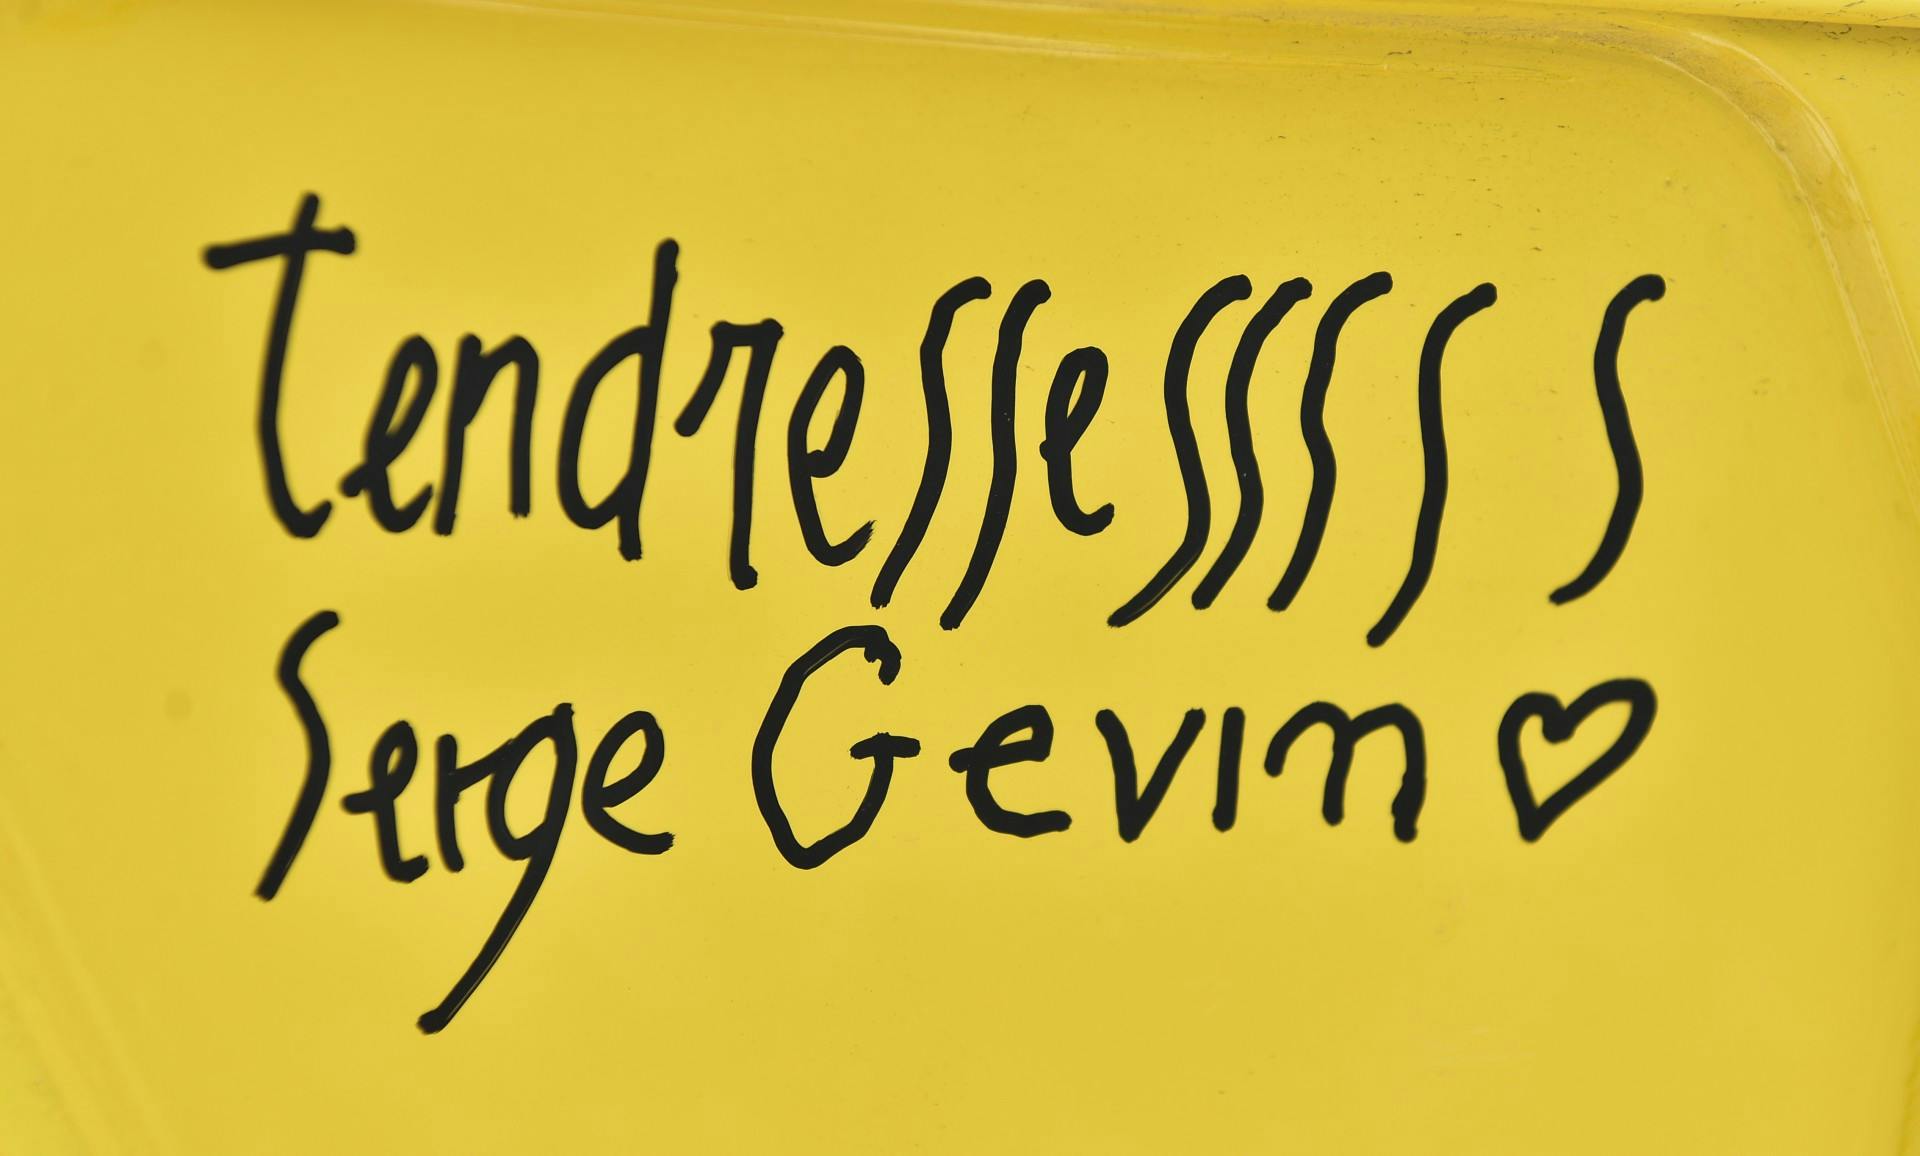 Tendressesssss
Serge Gevin ♡